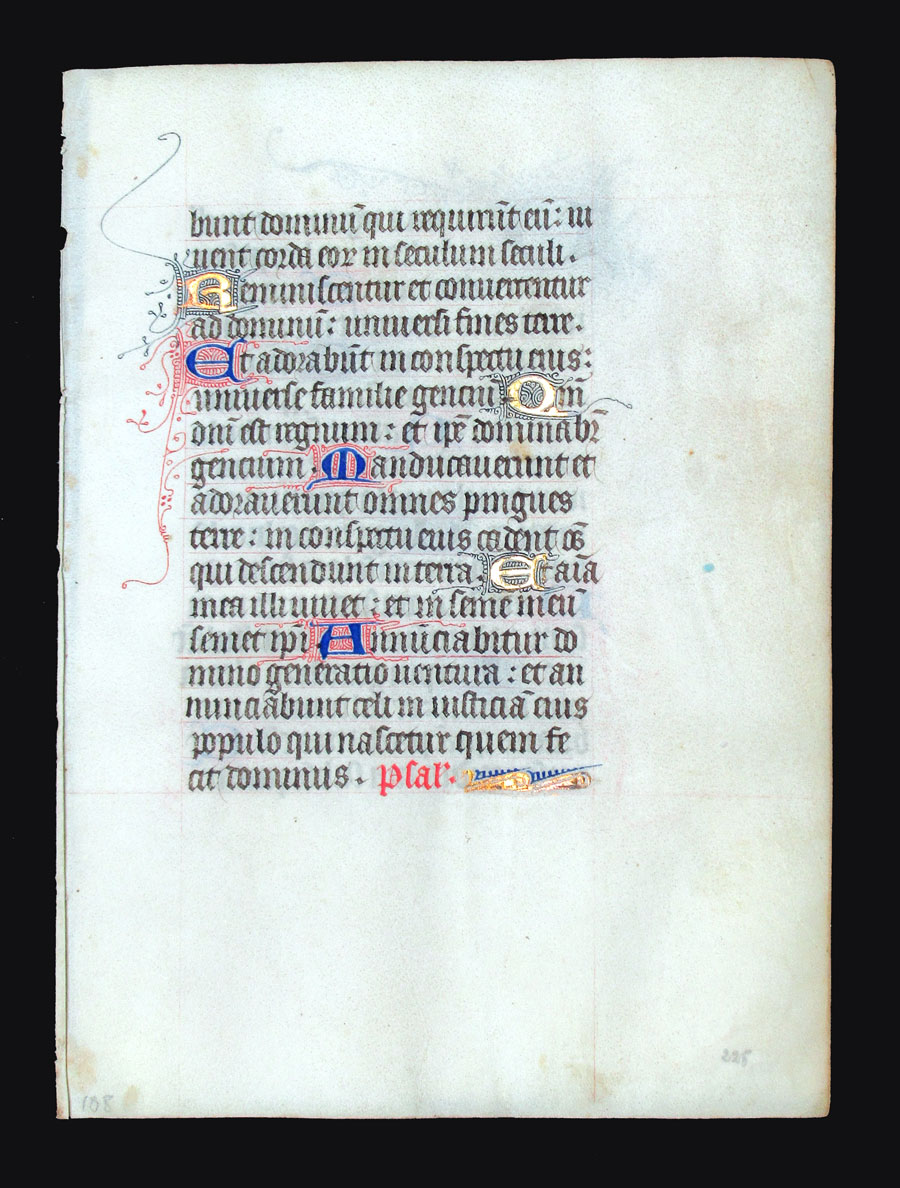 bunt dominū qui requirūt eū: ui
uent corda eoꝝ in seculum seculi.
Reminiscentur et conuertentur
ad dominū: uniuersi fines terre.
Et adorabūt in conspectu eius:
uniuerse familie genciū. Qm̄
dn̄i est regnum: et ip̄e dominabr̄
gencium. Manducauerunt et
adorauerunt omnes pingues
terre: in conspectu eius cadent oēs
qui descendunt in terrā. Et aīa
mea illi uiuet: et in seme meū
seruiet ip̄i. Annūciabitur do
mino generatio uentura: et an
nunciabunt celi in iusticiā eius
populo qui nascetur quem fe
cit dominus. psal'.
108
225